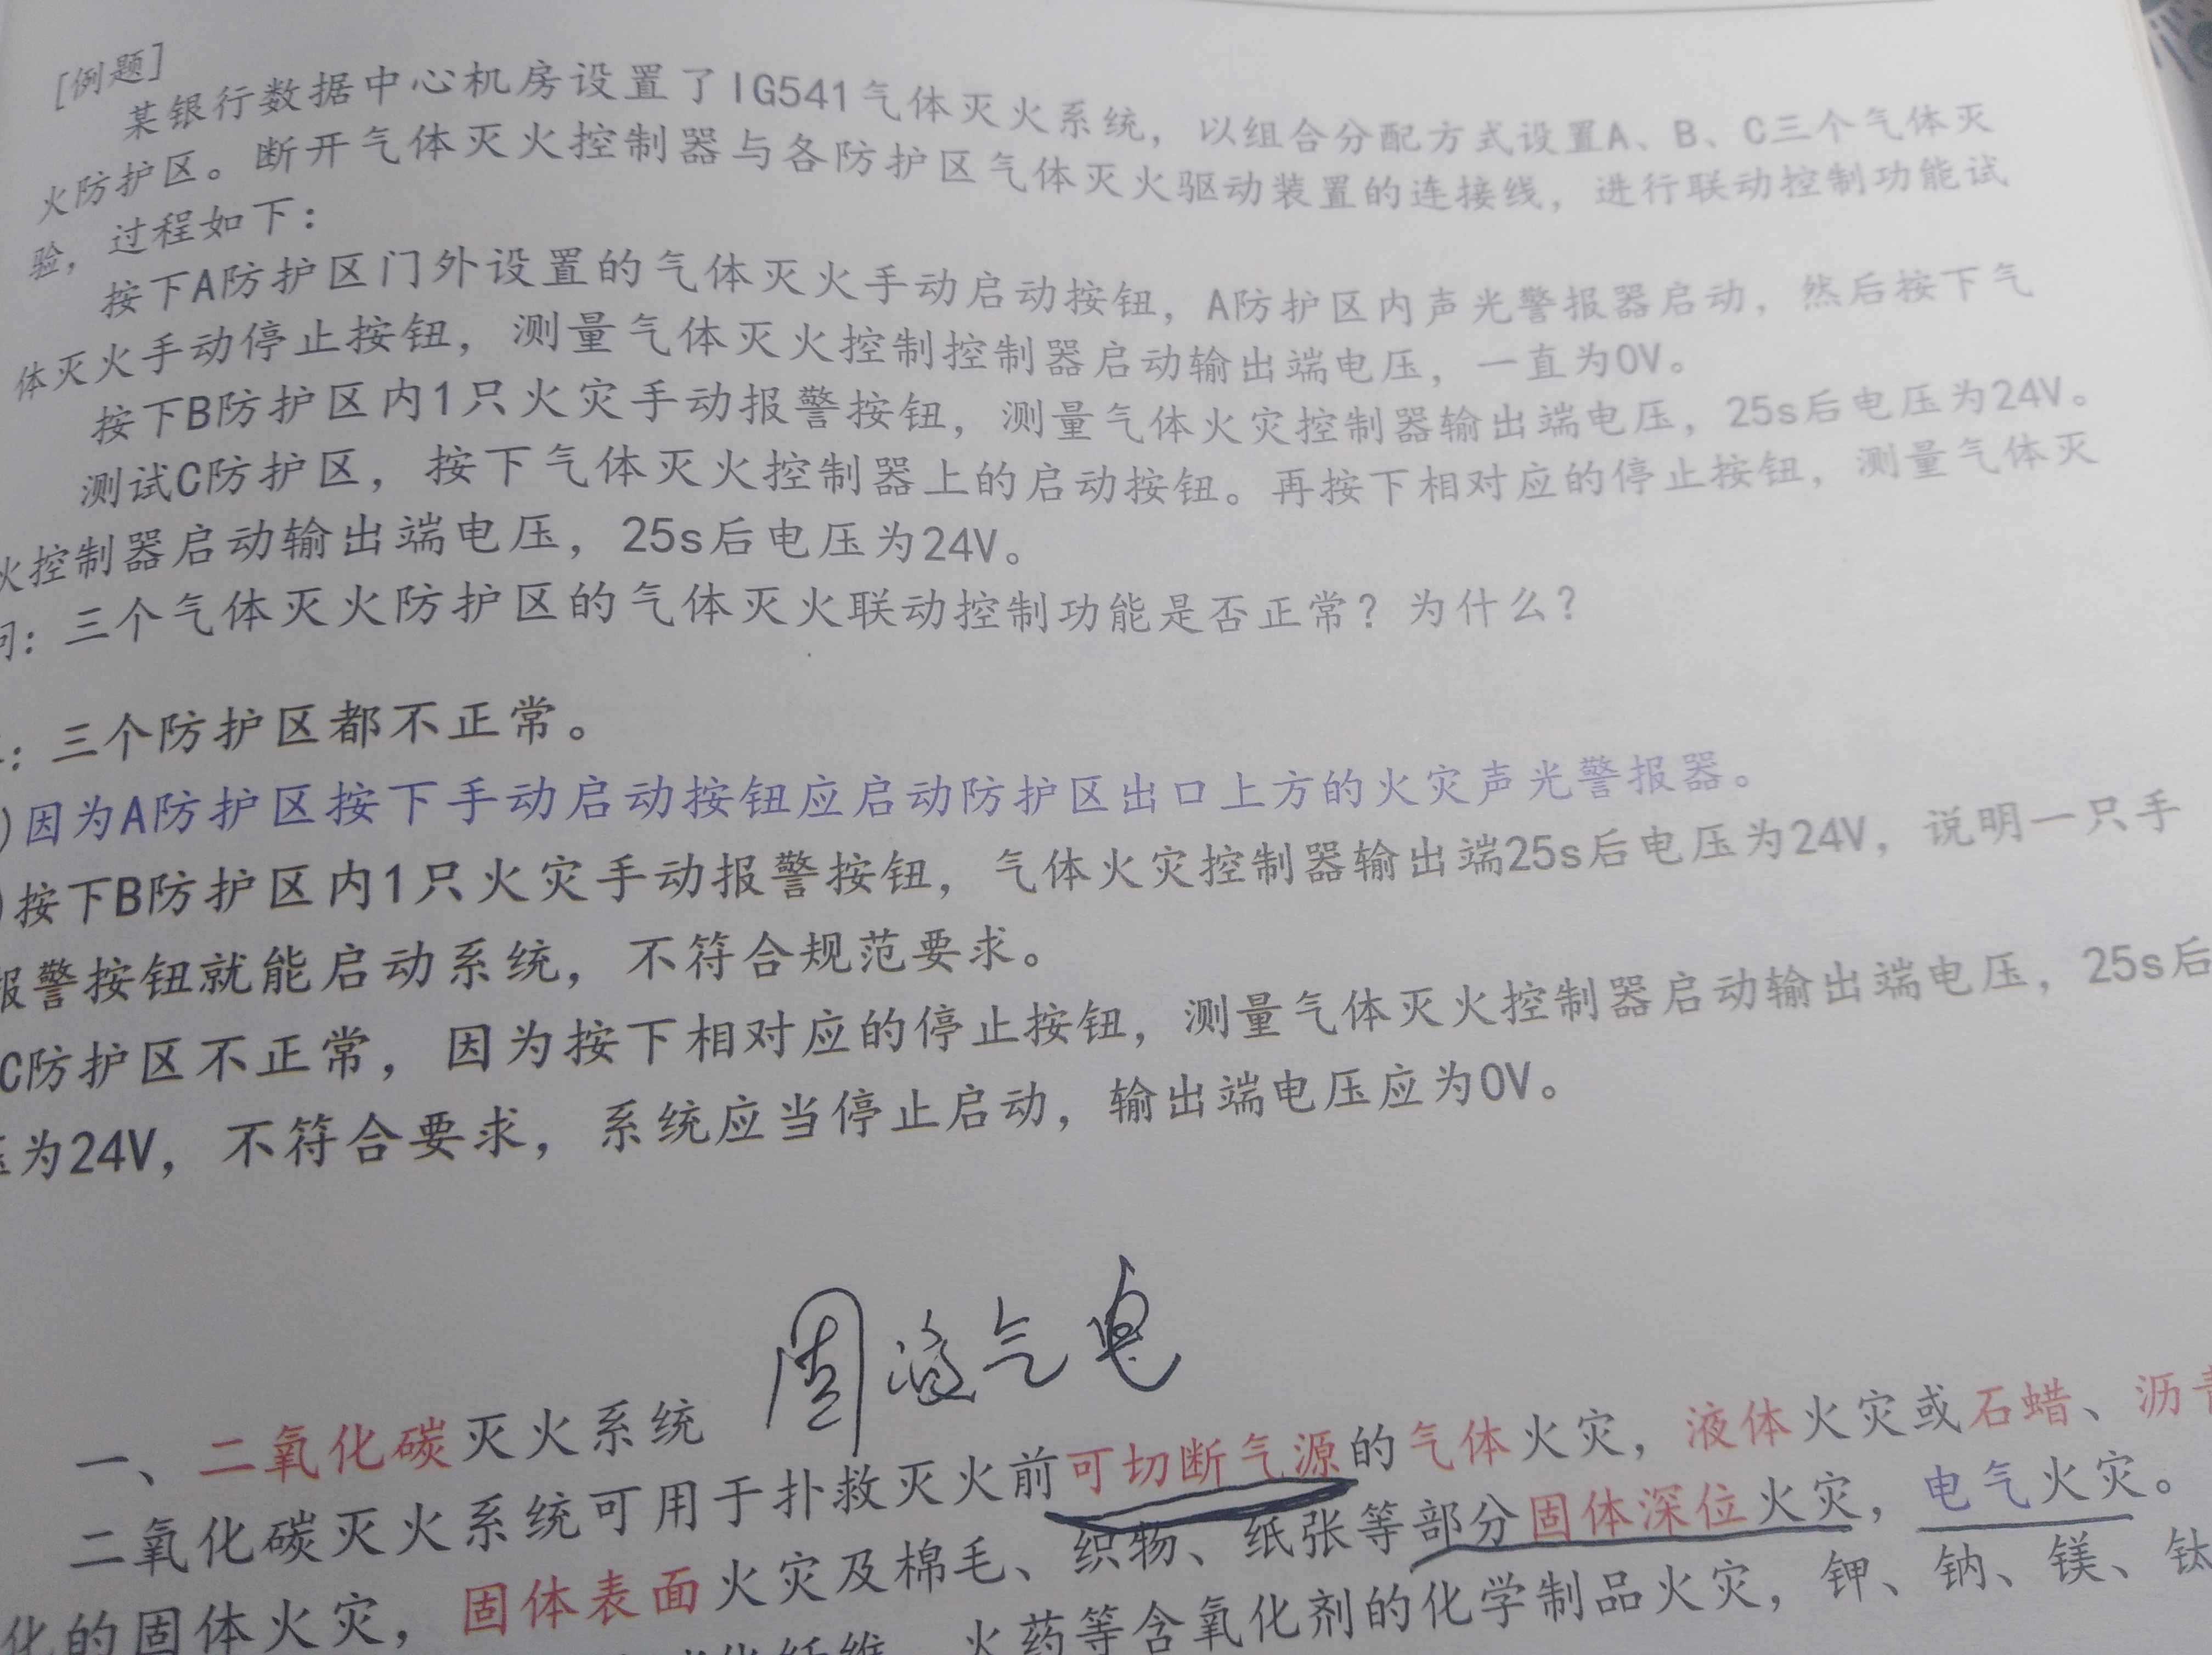 [例题]
某银行数据中心机房设置了IG541气体灭火系统，以组合分配方式设置A、B、C三个气体灭
火防护区。断开气体灭火控制器与各防护区气体灭火驱动装置的连接线，进行联动控制功能试
验，过程如下：
按下A防护区门外设置的气体灭火手动启动按钮，A防护区内声光警报器启动，然后按下气
体灭火手动停止按钮，测量气体灭火控制控制器启动输出端电压，一直为0V。
按下B防护区内1只火灾手动报警按钮，测量气体火灾控制器输出端电压，25s后电压为24V。
测试C防护区，按下气体灭火控制器上的启动按钮。再按下相对应的停止按钮，测量气体灭
火控制器启动输出端电压，25s后电压为24V。
问：三个气体灭火防护区的气体灭火联动控制功能是否正常？为什么？
：三个防护区都不正常。
)因为A防护区按下手动启动按钮应启动防护区出口上方的火灾声光警报器。
)按下B防护区内1只火灾手动报警按钮，气体火灾控制器输出端25s后电压为24V，说明一只手
报警按钮就能启动系统，不符合规范要求。
C防护区不正常，因为按下相对应的停止按钮，测量气体灭火控制器启动输出端电压，25s后
压为24V，不符合要求，系统应当停止启动，输出端电压应为0V。
固液气电
一、二氧化碳灭火系统
二氧化碳灭火系统可用于扑救灭火前可切断气源的气体火灾，液体火灾或石蜡、沥青
化的固体火灾，固体表面火灾及棉毛、织物、纸张等部分固体深位火灾，电气火灾。
火药等含氧化剂的化学制品火灾，钾、钠、镁、钛